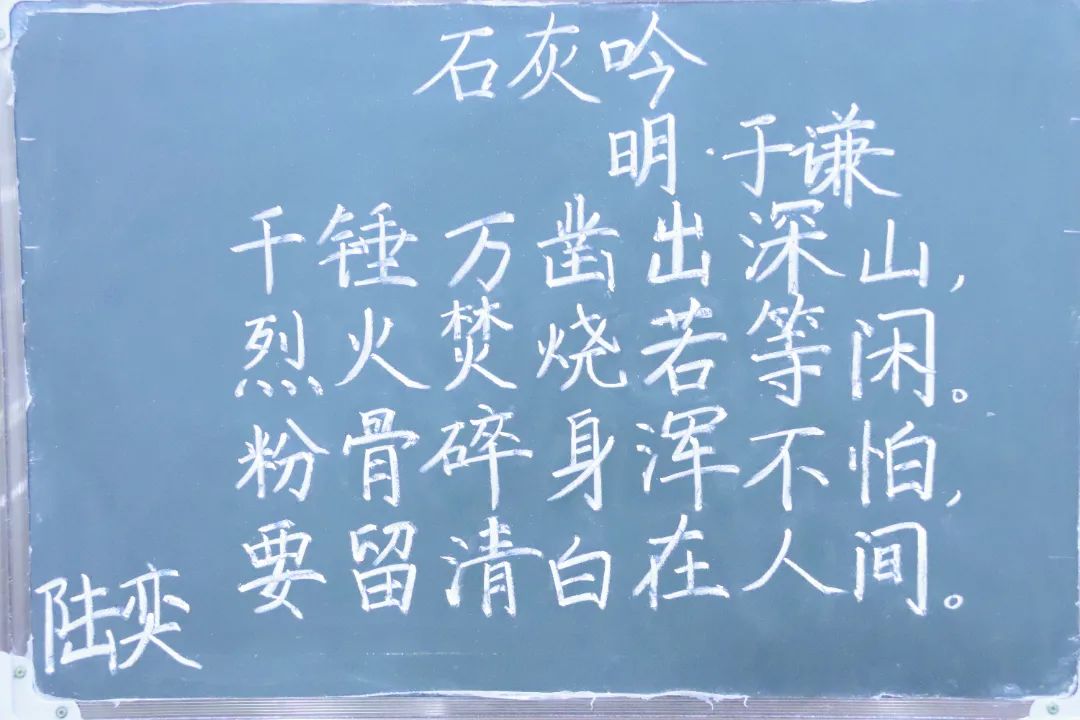 石灰吟
明·于谦
千锤万凿出深山,
烈火焚烧若等闲。
粉骨碎身浑不怕,
要留清白在人间。
陆奕